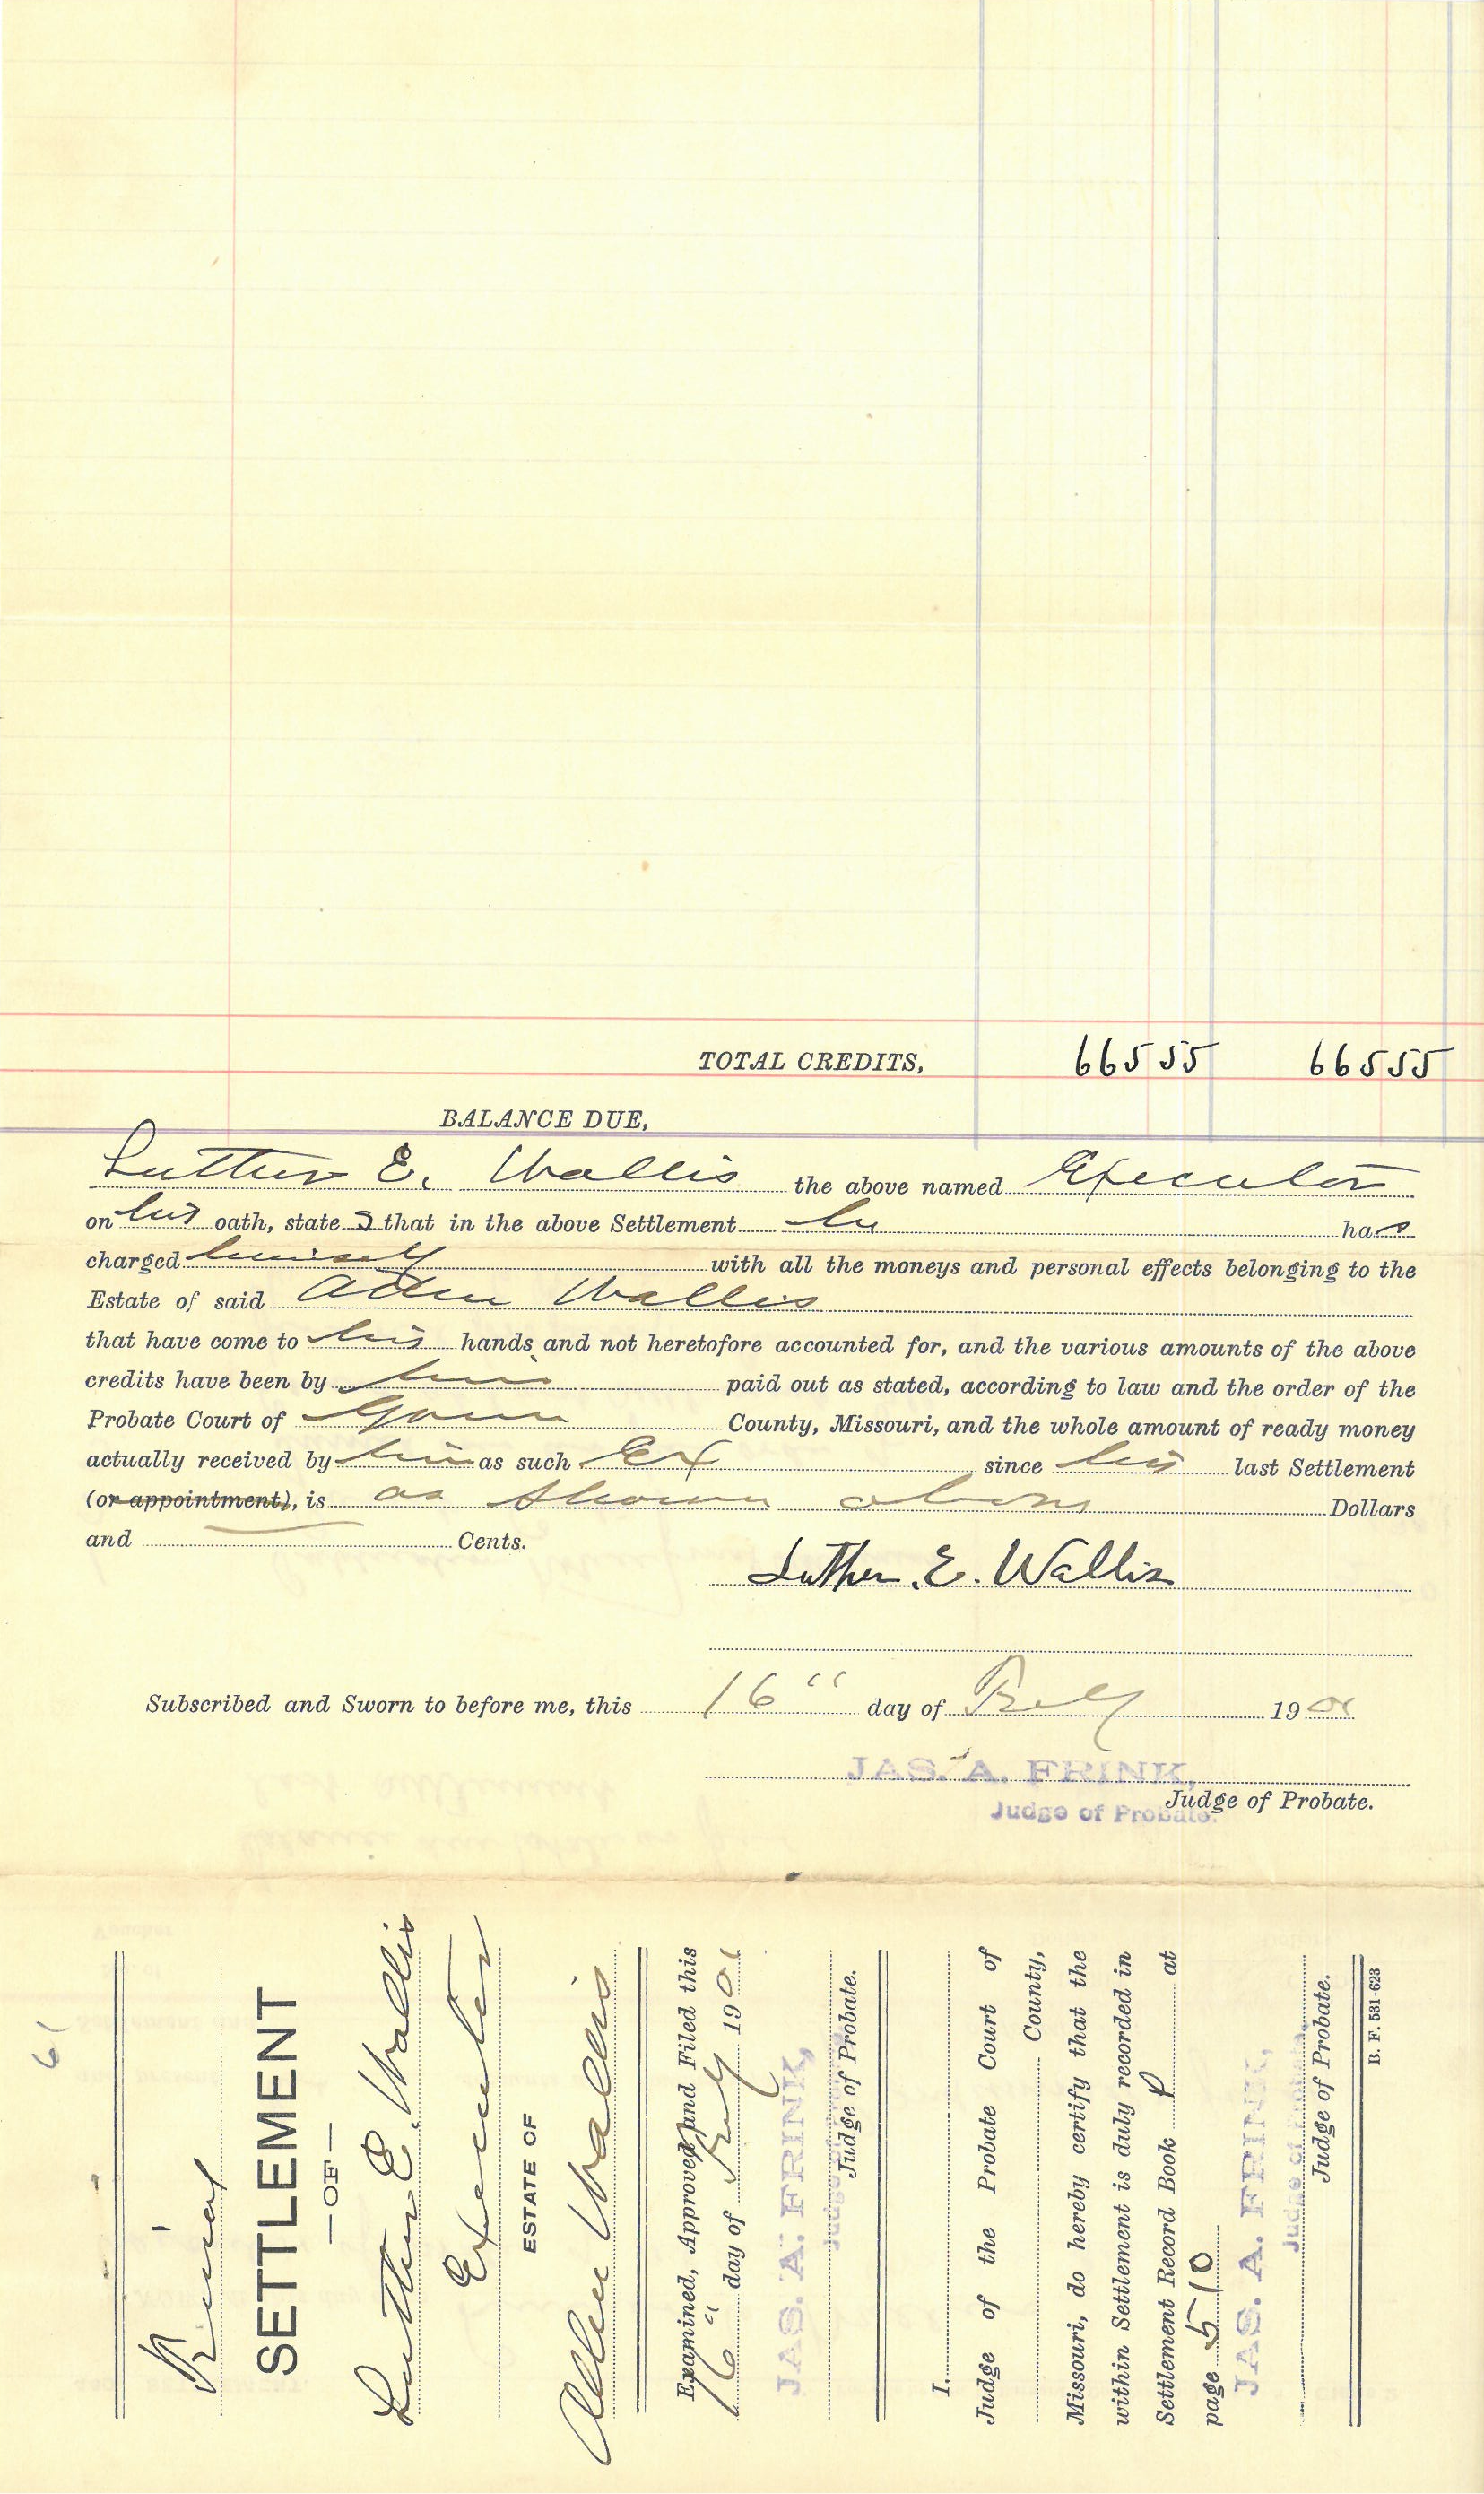 TOTAL CREDITS, 665 55 665 55
BALANCE DUE,
Luther E. Wallis the above named Executor
on his oath, state s that in the above Settlement he has
charged himself with all the moneys and personal effects belonging to the
Estate of said Allen Wallis
that have come to his hands and not heretofore accounted for, and the various amounts of the above
credits have been by him paid out as stated, according to law and the order of the
Probate Court of County, Missouri, and the whole amount of ready money
actually received by him as such Ex since his last Settlement
(or appointment), is as shown above Dollars
and Cents.
Luther. E. Wallis
Subscribed and Sworn to before me, this 16" day of 1901
JAS. A. FRINK,
Judge of Probate.
Judge of Probate.
61
Final
SETTLEMENT
—OF—
Luther E. Wallis
Executor
ESTATE OF
Allen Wallis
Examined, Approved and Filed this
16" day of 1901
JAS. A. FRINK,
Judge of Probate.
Judge of Probate.
I.
Judge of the Probate Court of
County,
Missouri, do hereby certify that the
within Settlement is duly recorded in
Settlement Record Book P at
page 510
JAS. A. FRINK,
Judge of Probate.
Judge of Probate.
B. F. 531-623